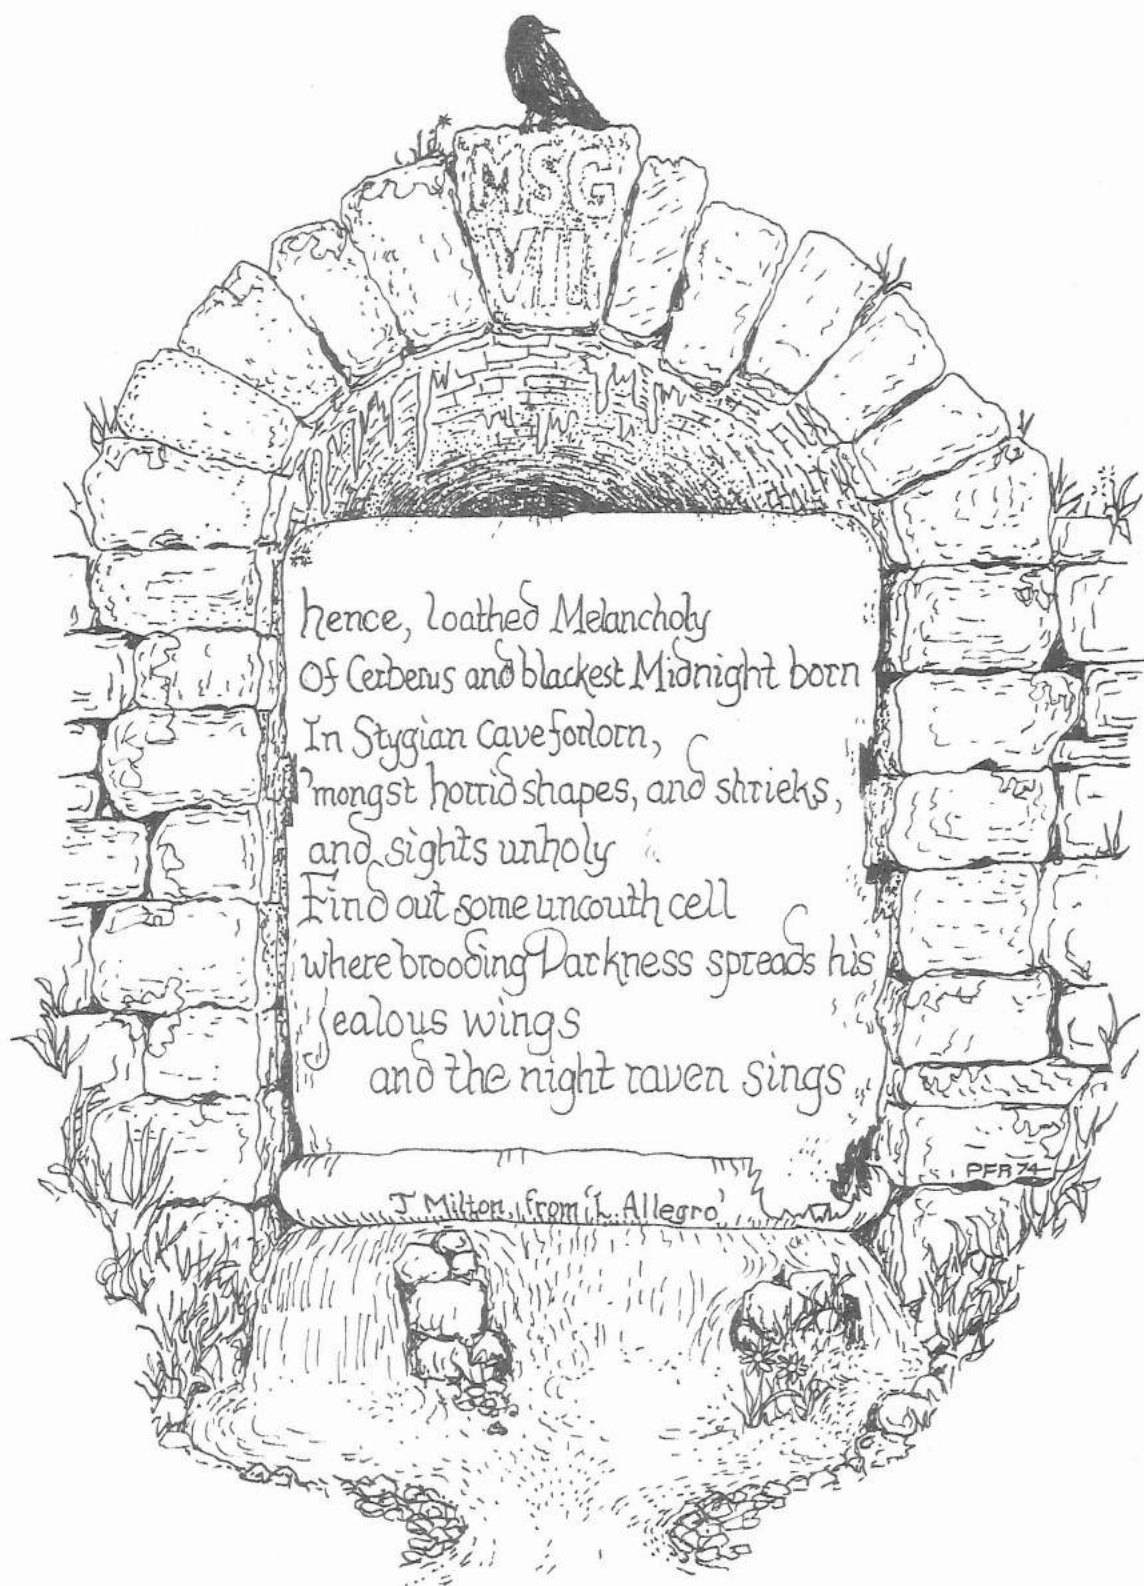 MSG
VIII
hence, loathed Melancholy
Of Cerberus and blackest Midnight born
In Stygian cave forlorn,
'mongst horrid shapes, and shrieks,
and sights unholy
Find out some uncouth cell
where brooding Darkness spreads his
jealous wings
and the night raven sings
PFR 74
J Milton, from 'L Allegro'